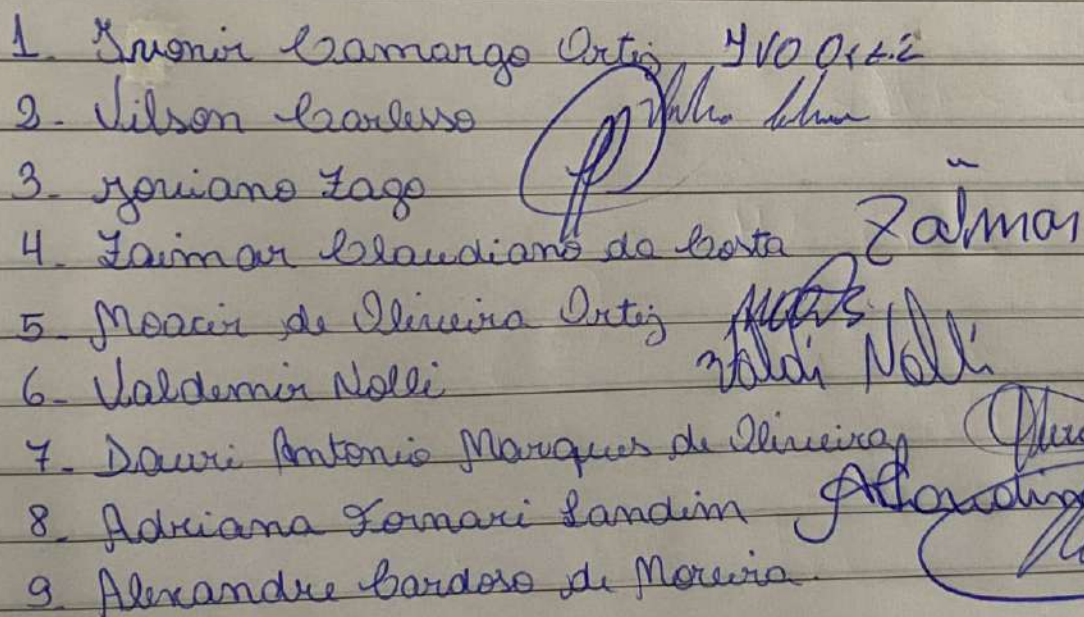 1. Ivonir Camargo Ortiz IVO Ortiz
2. Vilson Carlesso
3. Joviano Zago
4. Zaimar Claudiano da Costa Zaimar
5. Moacir de Oliveira Ortiz
6. Valdemir Nolli Valdi Nolli
7. Dauri Antonio Marques de Oliveira
8. Adriana Fornari Landim
9. Alexandre Cardoso de Moreira.